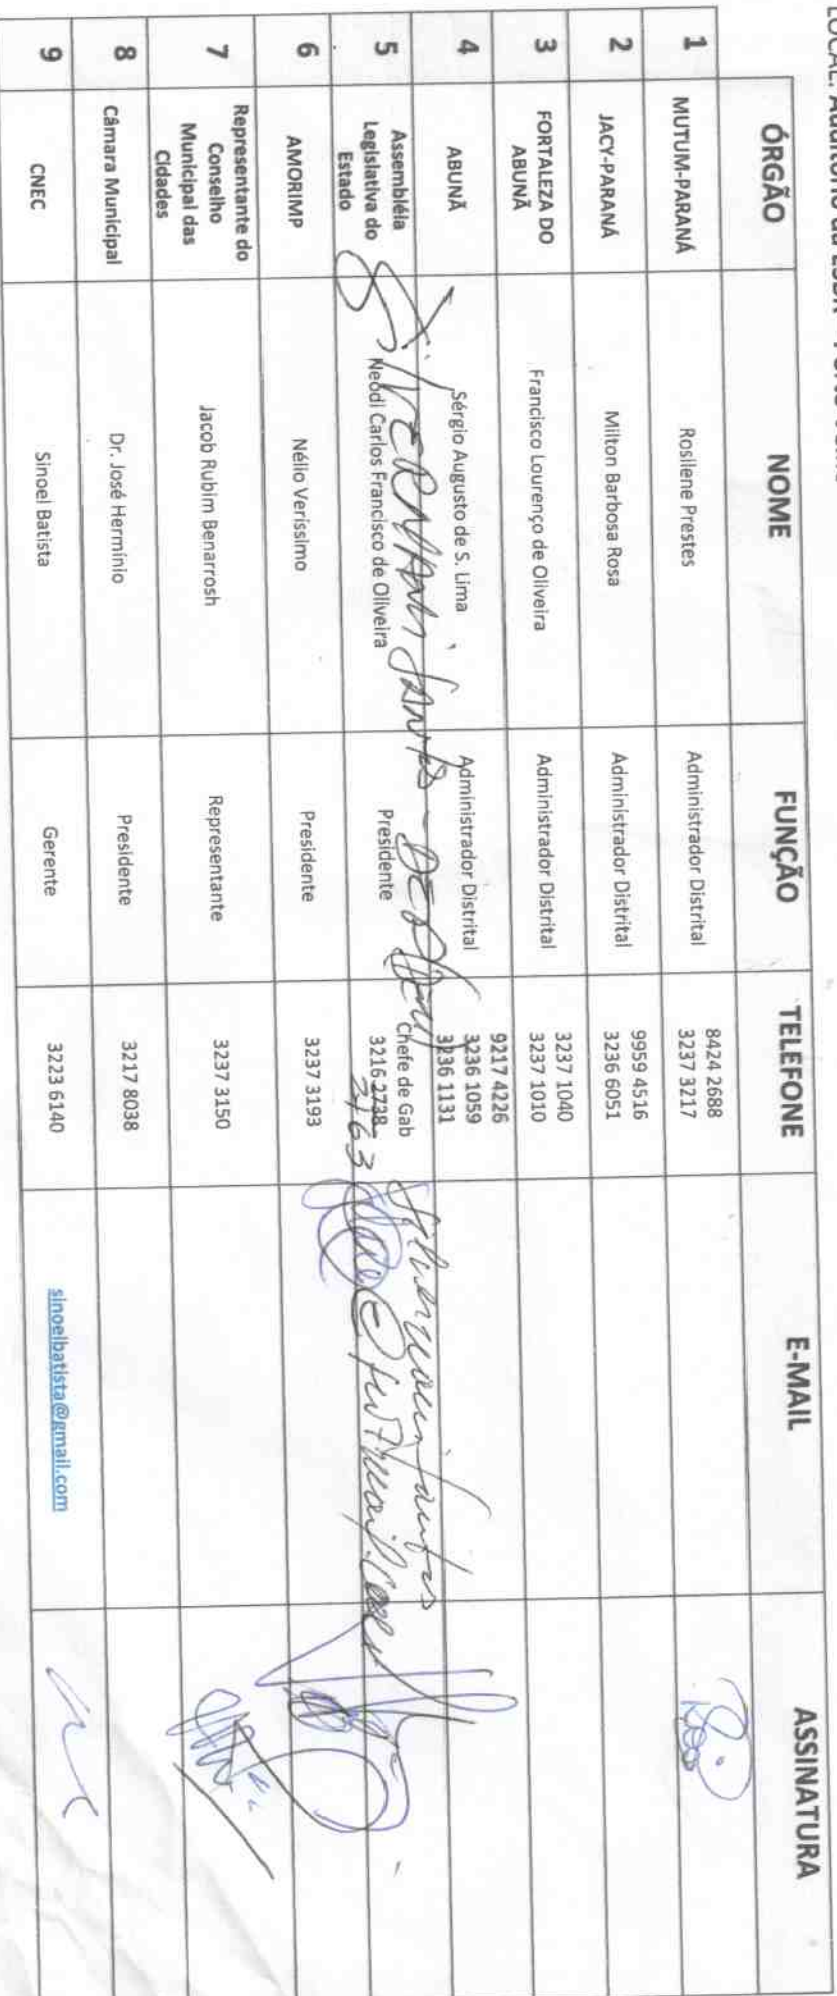 LOCAL: Auditório da
ÓRGÃO NOME FUNÇÃO TELEFONE E-MAIL ASSINATURA
1 MUTUM-PARANÁ Rosilene Prestes Administrador Distrital 8424 2688
3237 3217
2 JACY-PARANÁ Milton Barbosa Rosa Administrador Distrital 9959 4516
3236 6051
3 FORTALEZA DO
ABUNÃ Francisco Lourenço de Oliveira Administrador Distrital 3237 1040
3237 1010
4 ABUNÃ Sérgio Augusto de S. Lima Administrador Distrital 9217 4226
3236 1059
3236 1131
5 Assembléia
Legislativa do
Estado Neodi Carlos Francisco de Oliveira Presidente Chefe de Gab
3216 2738
Silvernani Santos -
2763
Silvernani Santos
@hotmail.com
6 AMORIMP Nélio Veríssimo Presidente 3237 3193
7 Representante do
Conselho
Municipal das
Cidades Jacob Rubim Benarrosh Representante 3237 3150
8 Câmara Municipal Dr. José Hermínio Presidente 3217 8038
9 CNEC Sinoel Batista Gerente 3223 6140 sinoelbatista@gmail.com